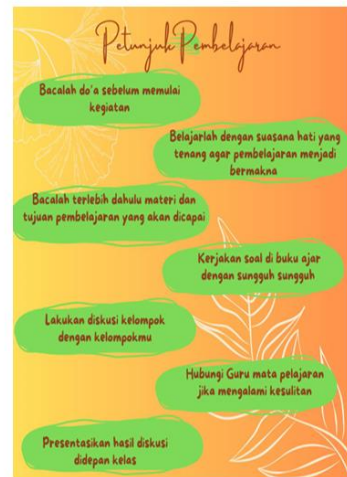 Petunjuk Pembelajaran
Bacalah do'a sebelum memulai
kegiatan
Belajarlah dengan suasana hati yang
tenang agar pembelajaran menjadi
bermakna
Bacalah terlebih dahulu materi dan
tujuan pembelajaran yang akan dicapai
Kerjakan soal di buku ajar
dengan sungguh sungguh
Lakukan diskusi kelompok
dengan kelompokmu
Hubungi Guru mata pelajaran
jika mengalami kesulitan
Presentasikan hasil diskusi
didepan kelas